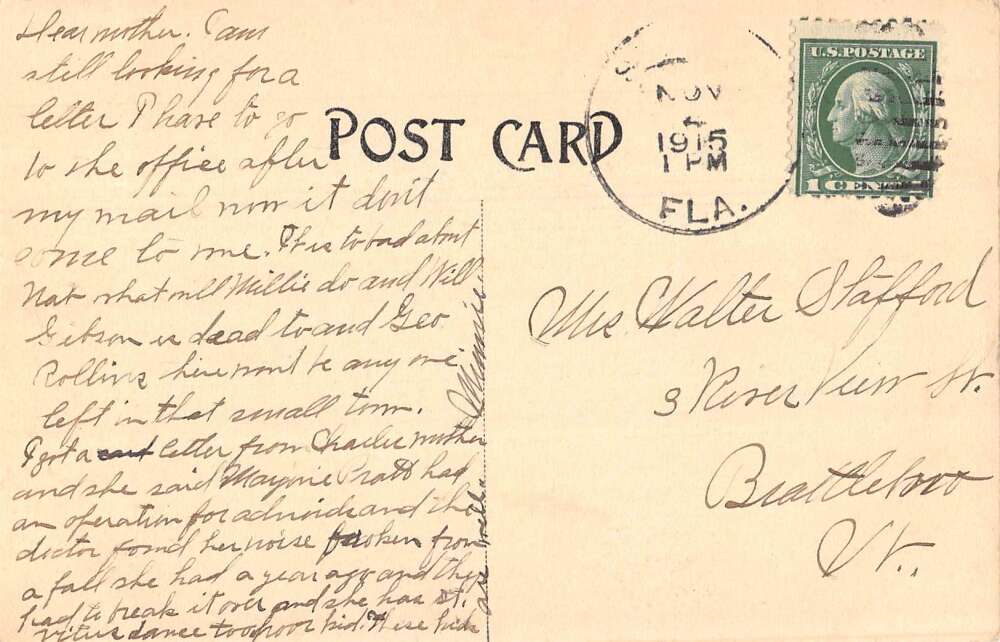 Dear mother. I am
still looking for a
letter I have to go
to the office after
my mail now it don't
come to me. It is to bad about
Nat what will Millie do and Will
Gibson is dead to and Geo
Rollins here wont be any one
left in that small town.
I got a letter from Charlie mother
and she said Mayme Pratt had
an operation for adnoids and the
doctor found her noise broken from
a fall she had a year ago and they
had to break it over and she has St.
Vitus dance too poor kid. These kids
are
Minnie
POST CARD
NOV
4
1915
1 PM
FLA.
U.S. POSTAGE
1 CENT
Mrs Walter Stafford
3 River View St.
Brattleboro
Vt.